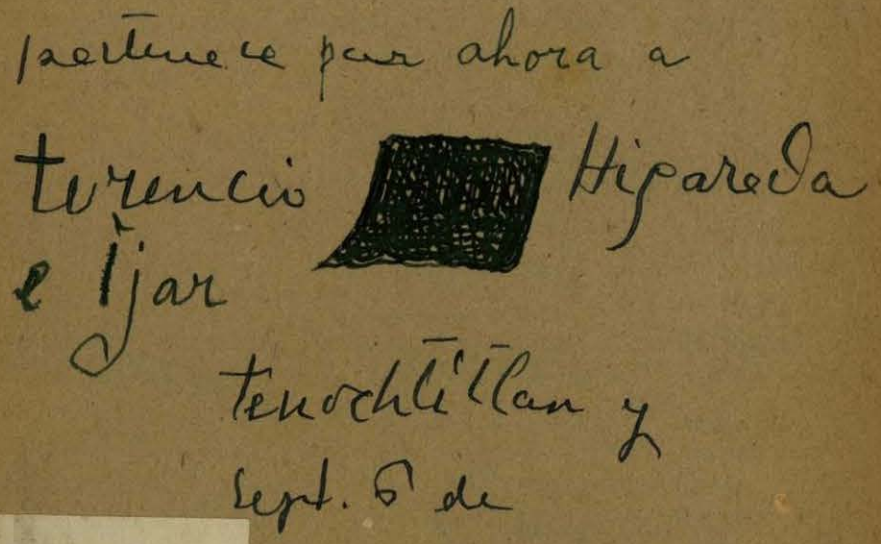 pertenece por ahora a
terencio Higareda
e Ijar
tenochtitlan y
sept. 5 de